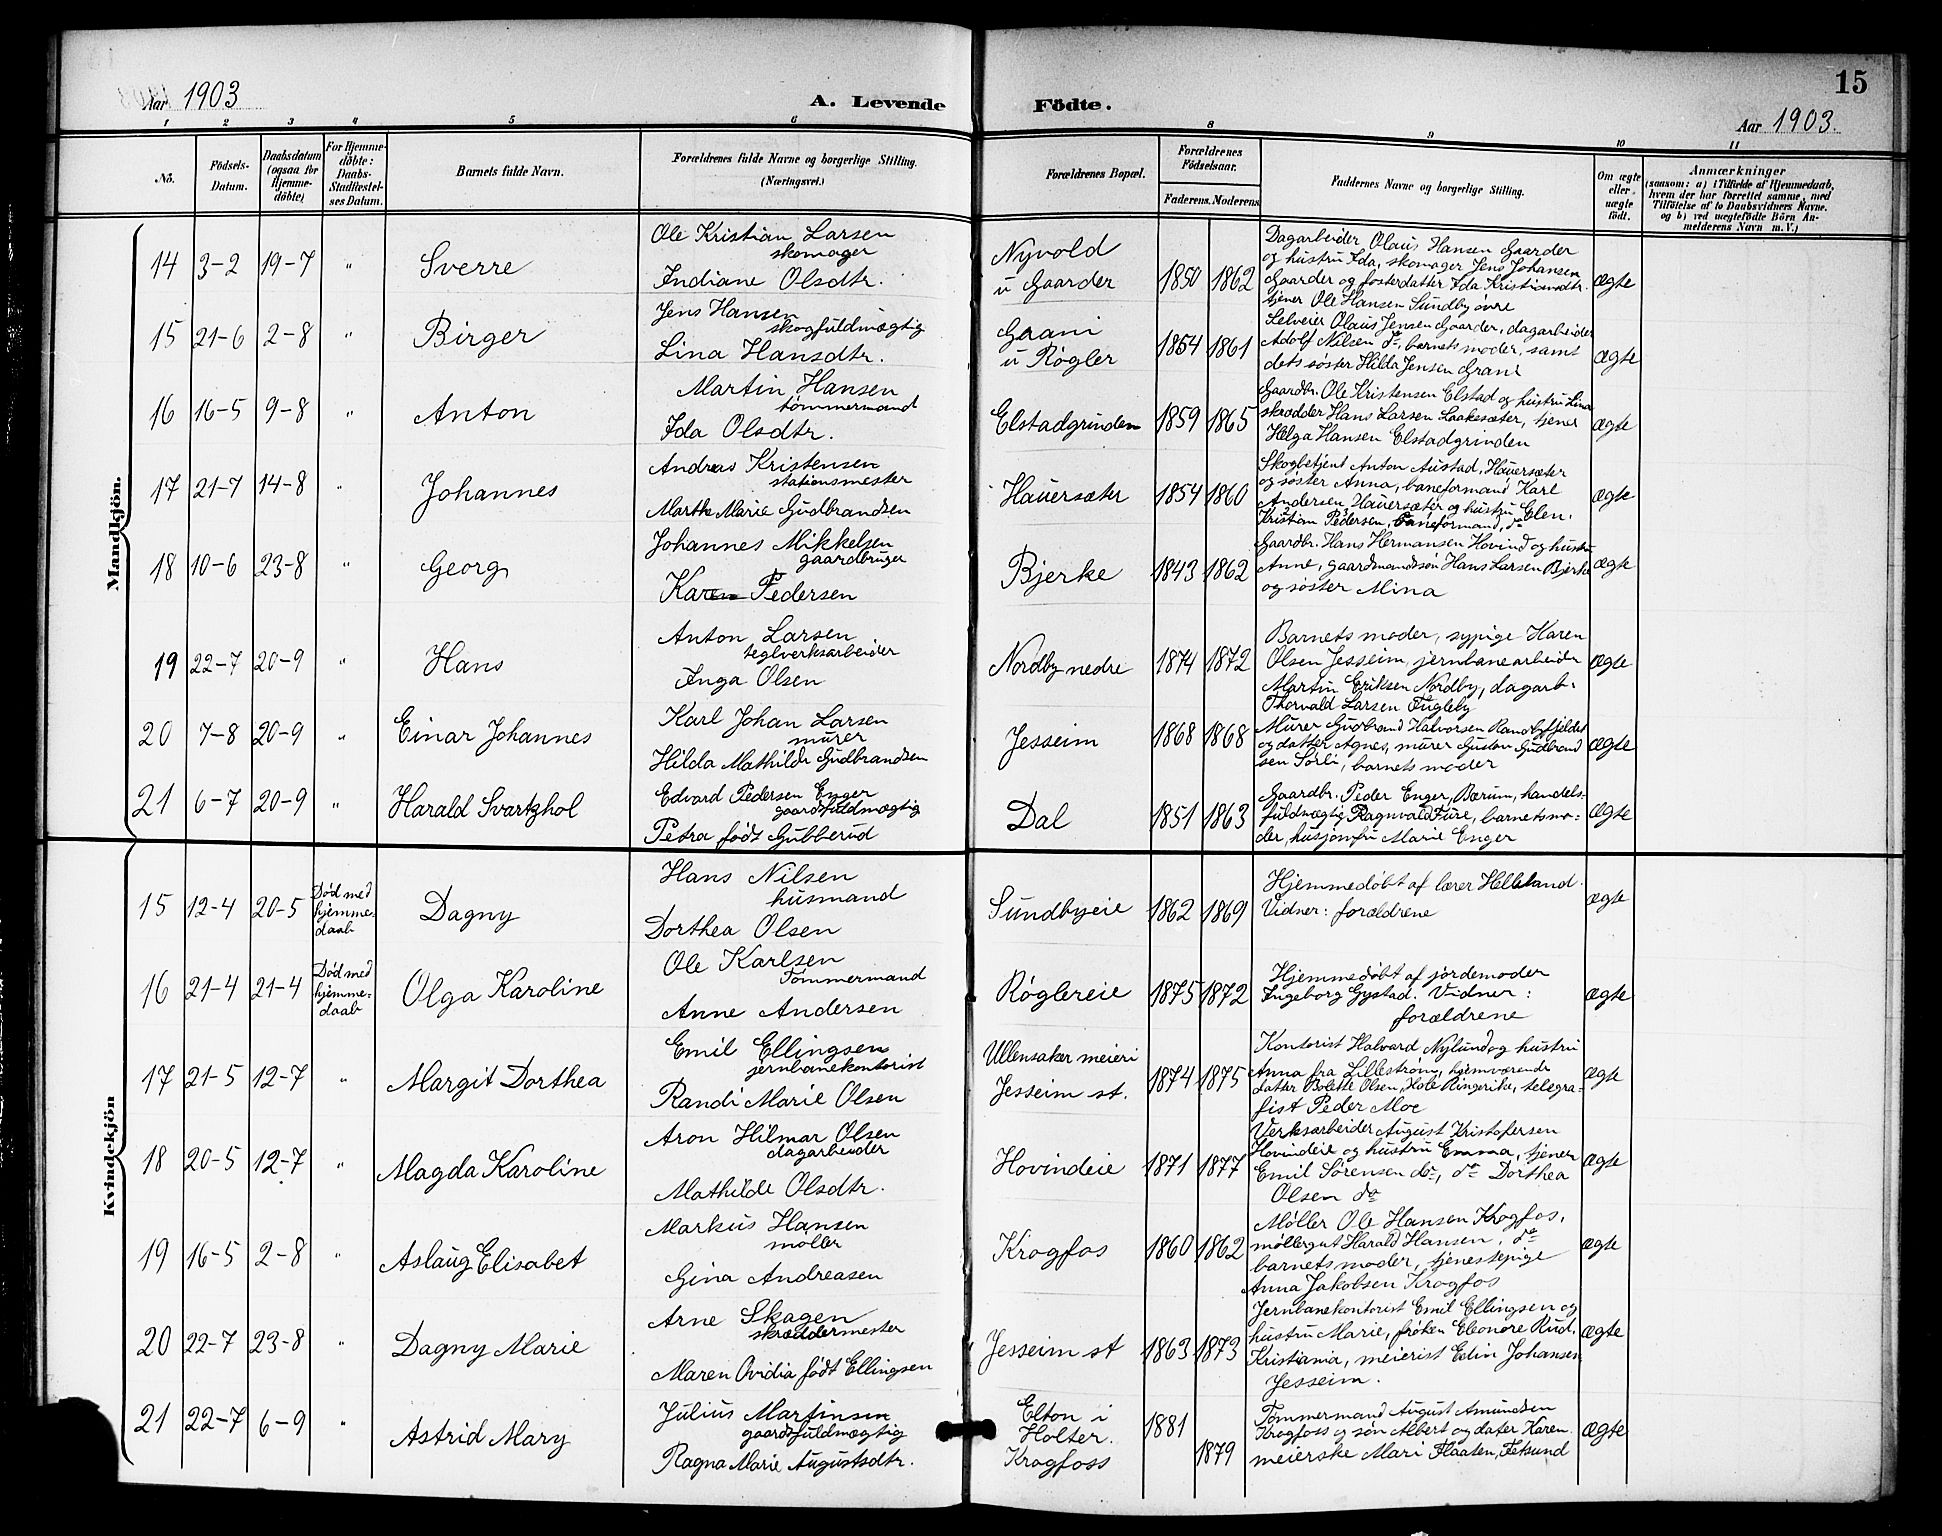 Aar 1903
A. Levende Födte.
15
Aar 1903.
1 2 3 4 5 6 8 9 10 11
Nö.
Födsels-Datum.
Daabsdatum (ogsaa for Hjemmedöbte)
For Hjemmedöbte: Daabs-Stadfæstelses Datum.
Barnets fulde Navn.
Forældrenes fulde Navne og borgerlige Stilling. (Næringsvei.)
Forældrenes Bopæl.
Forældrenes Födselsaar.
Faderens. Moderens
Faddernes Navne og borgerlige Stilling.
Om ægte eller uægte födt.
Anmærkninger
(saasom: a) i Tilfælde af Hjemmedaab, hvem der har forrettet samme, med Tilföielse af to Daabsvidners Navne. og b) ved uægtefödte Börn Anmelderens Navn m. V.)
Mandkjön.
14 3-2 19-7 " Sverre
Ole Kristian Larsen
skomager
Indiane Olsdtr.
Nyvold
u Gaarder
1850 1862
Dagarbeider Olaus Hansen Gaarder
og hustru Ida, skomager Jens Johansen
Gaarder og fosterdatter Ida Kristiansdtr.
tjener Ole Hansen Sundby øvre
ægte
15 21-6 2-8 " Birger
Jens Hansen
skogfuldmægtig
Lina Hansdtr.
Grani
u Røgler
1854 1861
Selveier Olaus Jensen Gaarder, dagarbeider
Adolf Nilsen do, barnets moder, samt
dets søster Hilda Jensen Grani
ægte
16 16-5 9-8 " Anton
Martin Hansen
tømmermand
Ida Olsdtr.
Elstadgrinden
1859 1865
Gaardbr. Ole Kristensen Elstad og hustru Lina
skrædder Hans Larsen Laakesæter, tjener
Helga Hansen Elstadgrinden
ægte
17 21-7 14-8 " Johannes
Andreas Kristensen
stationsmester
Marthe Marie Gudbrandsen
Hauersæter
1854 1860
Skogbetjent Anton Austad, Hauersæter
og søster Anna, baneformand Karl
Andersen Hauersæter og hustru Elen.
Kristian Pedersen, baneformand, do
ægte
18 10-6 23-8 " Georg
Johannes Mikkelsen
gaardbruger
Karen Pedersen
Bjerke
1843 1862
Gaardbr. Hans Hermansen Hovind og hustru
Anne, gaardmandssøn Hans Larsen Bjerke
og søster Mina
ægte
19 22-7 20-9 " Hans
Anton Larsen
teglverksarbeider
Inga Olsen
Nordby nedre
1874 1872
Barnets moder, sypige Karen
Olsen Jesseim, jernbanearbeider
Martin Eriksen Nordby, dagarb.
Thorvald Larsen Fugleby
ægte
20 7-8 20-9 " Einar Johannes
Karl Johan Larsen
murer
Hilda Mathilde Gudbrandsen
Jesseim
1868 1868
Murer Gudbrand Halvorsen Randbyfjeldet
og datter Agnes, murer Gustav Gudbrand
sen Sørli, barnets moder
ægte
21 6-7 20-9 " Harald Svartzhol
Edvard Pedersen Enger
gaardsfuldmægtig
Petra født Gubberud
Dal
1851 1863
Gaardbr. Peder Enger, Bærum, handels-
fuldmægtig Ragnvald Fure, barnets mo-
der, husjomfru Marie Enger
ægte
Kvindekjön
15 12-4 20-5 Død med hjemme-daab Dagny
Hans Nilsen
husmand
Dorthea Olsen
Sundbyeie
1862 1869
Hjemmedøbt af lærer Helleland.
Vidner: forældrene
ægte
16 21-4 21-4 Død med hjemme-daab Olga Karoline
Ole Karlsen
Tømmermand
Anne Andersen
Røglereie
1875 1872
Hjemmedøbt af jordemoder
Ingeborg Gystad. Vidner:
forældrene
ægte
17 21-5 12-7 " Margit Dorthea
Emil Ellingsen
jernbanekontorist
Randi Marie Olsen
Ullensaker meieri
Jesseim st.
1874 1875
Kontorist Halvard Nylund og hustru
Anna fra Lillestrøm, hjemværende
datter Bolette Olsen, Hole Ringerike, telegra-
fist Peder Moe
ægte
18 20-5 12-7 " Magda Karoline
Aron Hilmar Olsen
dagarbeider
Mathilde Olsdtr.
Hovindeie
1871 1877
Verksarbeider August Kristofersen
Hovindeie og hustru Emma, tjener
Emil Sørensen do, do Dorthea
Olsen do
ægte
19 16-5 2-8 " Aslaug Elisabet
Markus Hansen
møller
Gina Andreasen
Krogfos
1860 1862
Møller Ole Hansen Krogfos,
møllergut Harald Hansen, do
barnets moder, tjenestepige
Anna Jakobsen Krogfos
ægte
20 22-7 23-8 " Dagny Marie
Arne Skagen
skræddermester
Maren Ovidia født Ellingsen
Jesseim st
1863 1873
Jernbanekontorist Emil Ellingsen og
hustru Marie, frøken Eleonore Rud,
Kristiania, meierist Edin Johansen
Jesseim.
ægte
21 22-7 6-9 " Astrid Mary
Julius Martinsen
gaardsfuldmægtig
Ragna Marie Augustsdtr.
Elton i
Holter.
Krogfoss
1881
1879
Tømmermand August Amundsen
Krogfoss og søn Albert og dater Karen.
meierske Mari Flaaten, Fetsund
ægte